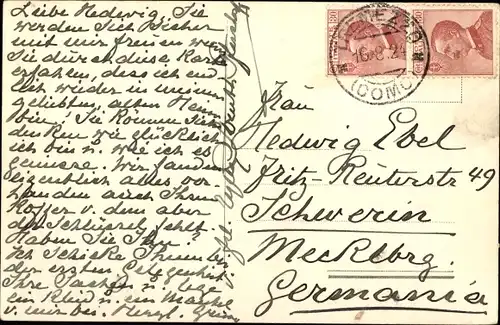 Liebe Hedwig Sie
werden sich sicher
mit mir freuen wenn
Sie durch diese Karte
erfahren, dass ich end
lich wieder in meiner
geliebten, alten Heimat
bin! Sie können sich
denken wie glücklich
ich bin u. wie ich es
geniesse. Wir fanden
eigentlich alles vor
handen auch Ihren
Koffer v. dem aber
der Schlüssel fehlt.
Haben Sie Ihn?
Ich schicke Ihnen bei
der ersten Gelegenheit
Ihre Sachen u. lege
ein Kleid u. ein
v. mir bei. Herzl. Grüsse
MEZZE
16.8.24
(COMO)
Frau
Hedwig Ebel
Fritz-Reuterstr 49
Schwerin
Mecklbrg.
Germania